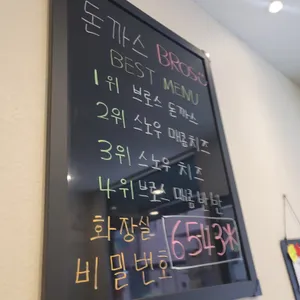 돈까스 BROS
BEST MENU
1위 브로스 돈까스
2위 스노우 매콤치즈
3위 스노우 치즈
4위 브로스 매콤 반반
화장실
비밀번호 6543*